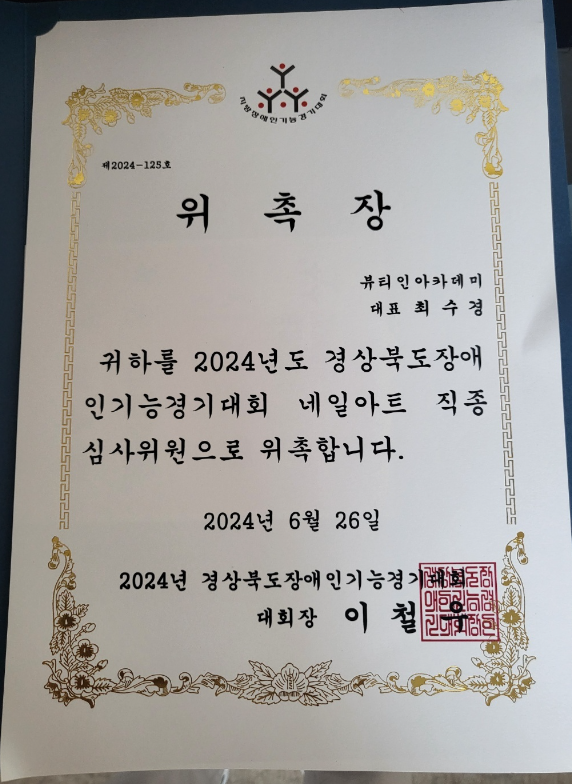 지방장애인기능경기대회
제2024-125호
위 촉 장
뷰티인아카데미
대표 최 수 경
귀하를 2024년도 경상북도장애
인기능경기대회 네일아트 직종
심사위원으로 위촉합니다.
2024년 6월 26일
2024년 경상북도장애인기능경기대회
대회장 이 철 우